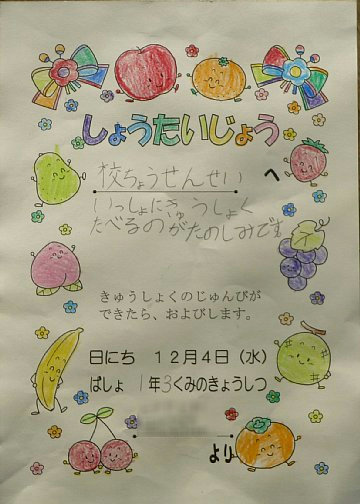 しょうたいじょう
校ちょうせんせい
へ
いっしょにきゅうしょく
たべるのがたのしみです
きゅうしょくのじゅんびが
できたら、およびします。
日にち 12月4日(水)
ばしょ 1年3くみのきょうしつ
より